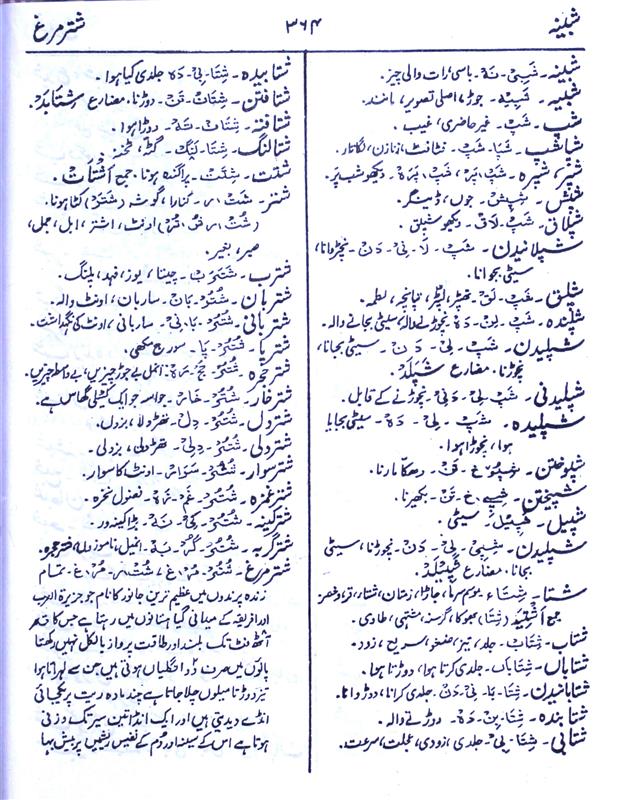 شبلینہ
۳۶۴
شترمرغ
شبلینہ۔ شَبِیْ۔ نَہ۔ باسی، رات والی چیز۔
شبیہ۔ شَبِیہ۔ جوڑ، اصلی تصویر، مانند۔
شپ۔ شَپْ۔ غیر حاضری، غیب۔
شپاشپ۔ شَپَا۔ شَپْ۔ لگاتار۔
شپر، شپرہ۔ شَپْ۔ پَرْ، شَپْ۔ پَرَہ۔ دیکھو شب پر۔
شپش۔ شِپِشْ۔ جوں، ڈھینگر۔
شپلاق۔ شَپْ۔ لَاقْ۔ دیکھو شپلق۔
شپلانیدن۔ شَپْ۔ لَا۔ نِیْ۔ دَنْ۔ نچڑوانا،
سیٹی بجوانا۔
شپلق۔ شَپْ۔ لَقْ۔ تھپڑ، لپڑ، تپانچہ، لطمہ۔
شپلندہ۔ شَپْ۔ لِنْ۔ دَہ۔ نچوڑنے والہ، سیٹی بجانے والہ۔
شپلیدن۔ شَپْ۔ لِیْ۔ دَنْ۔ سیٹی بجانا،
نچوڑنا۔ مضارع شَپْلَدْ۔
شپلیدنی۔ شَپْ۔ لِیْ۔ دَنِیْ۔ نچوڑنے کے قابل۔
شپلیدہ۔ شَپْ۔ لِیْ۔ دَہ۔ سیٹی بجایا
ہوا، نچوڑا ہوا۔
شپوختن۔ شپُو۔ خْ۔ تَنْ۔ دھکا مارنا۔
شپیختن۔ شِپِے۔ خْ۔ تَنْ۔ بکھیرنا۔
شپیل۔ شپِیْل۔ سیٹی۔
شپیلیدن۔ شِپِیْ۔ لِیْ۔ دَنْ۔ نچوڑنا، سیٹی
بجانا۔ مضارع شپِیْلَدْ۔
شتا۔ شِتَاءَ۔ موسم سرما، جاڑا، زمستان،
جمع اَشْتِیَہْ (شِتَا) بھوکا، گرسنہ، مشتہی، طاوی۔
شتاب۔ شِتَابْ۔ جلد، تیز، سریع، زود۔
شتاباں۔ شِتَابَاں۔ جلدی کرتا ہوا، دوڑتا ہوا۔
شتابانیدن۔ شِتَا۔ بَا۔ نِیْ۔ دَنْ۔ جلدی کرانا، دوڑوانا۔
شتابندہ۔ شِتَا۔ بِنْ۔ دَہ۔ دوڑنے والہ۔
شتابی۔ شِتَا۔ بِیْ۔ جلدی، زودی، عجلت، سرعت۔
شتابیدہ۔ شِتَا۔ بِیْ۔ دَہ جلدی کیا ہوا۔
شتافتن۔ شِتَافْ۔ تَنْ۔ دوڑنا۔ مضارع شِتَابَدْ۔
شتافتہ۔ شِتَافْ۔ تَہ۔ دوڑا ہوا۔
شتالنگ۔ شِتَا۔ لَنْگ۔ گٹہ، ٹخنہ۔
شتت۔ شِتَتْ۔ پراگندہ ہونا۔ جمع اَشْتَاتْ۔
شتر۔ شَتْ۔ رْ۔ کنارا، گوشہ، (شَتَرْ) کٹا ہونا۔
(شُتْ۔ رْ، شُتُرْ) اونٹ، اشتر، ابل، جمل،
بعیر۔
شترب۔ شَتْرَبْ۔ چیتا، یوز، فہد، پلنگ۔
شتربان۔ شُتُرْ۔ بَانْ۔ ساربان، اونٹ والہ۔
شتربانی۔ شُتُرْ۔ بَا۔ نِیْ۔ ساربانی، اونٹ کی نگہداشت۔
شترپا۔ شُتُرْ۔ پَا۔ سورج مکھی۔
شترحجرہ۔ شُتُرْ۔ حُجْ۔ رَہ۔ انمل بے جوڑ چیزیں، بے واسطہ چیزیں۔
شترخار۔ شُتُرْ۔ خَارْ۔ جواسہ جو ایک کٹیلی گھاس ہے۔
شتردل۔ شُتُرْ۔ دِلْ۔ تھڑدلا، بزدل۔
شتردلی۔ شُتُرْ۔ دِلِیْ۔ تھڑدلی، بزدلی۔
شترسوار۔ شُتُرْ۔ سَوَارْ۔ اونٹ کا سوار۔
شترغمزہ۔ شُتُرْ۔ غَمْ۔ زَہ۔ فضول نخرہ۔
شترکینہ۔ شُتُرْ۔ کِیْ۔ نَہ۔ بڑا کینہ ور۔
شترگربہ۔ شُتُرْ۔ گُرْ۔ بَہ۔ انمیل، ناموزوں،
شترمرغ۔ شُتُرْ۔ مُرْغْ، شُتْ۔ رْ۔ مُرْغْ۔ تمام
زندہ پرندوں میں عظیم ترین جانور کا نام جو جزیرۃ العرب
اور افریقہ کے میدانی گیاہستانوں میں رہتا ہے جس کا قد
آٹھ فٹ تک بلند اور طاقت پرواز بالکل نہیں رکھتا
پاؤں میں صرف دو انگلیاں ہوتی ہیں جن سے لہراتا ہوا
تیز دوڑتا میلوں چلا جاتا ہے چند مادہ ریت پر یکجائی
انڈے دیدیتی ہیں اور ایک انڈا تین سیر تک وزنی
ہوتا ہے اس کے سینہ اور دُم کے نفیس ریشیں پر بیش بہا